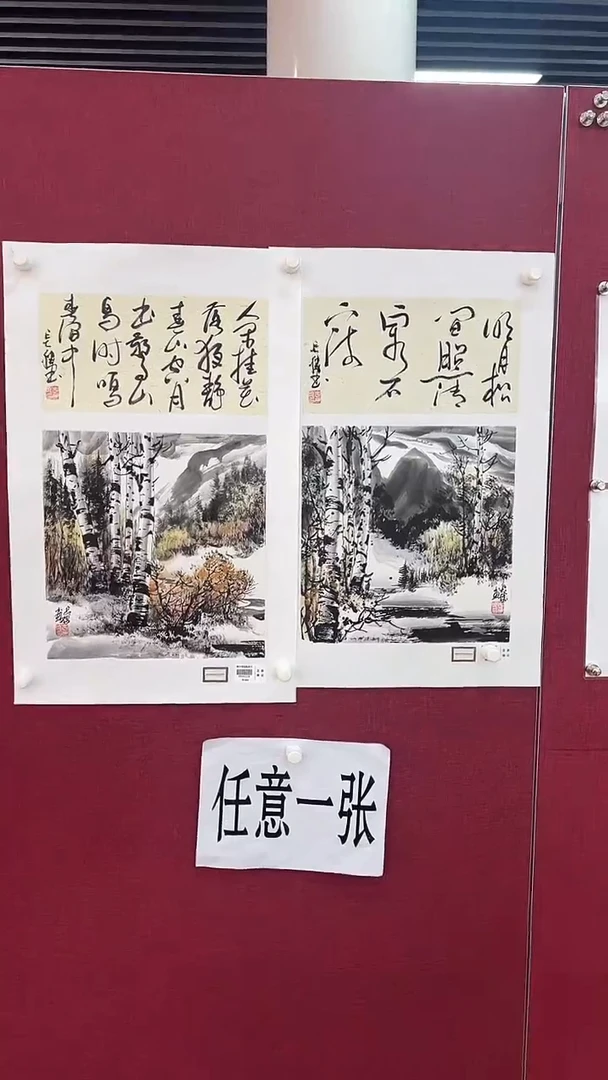 人闲桂花
落夜静
春山空月
出惊山
鸟时鸣
春涧中
明月松
间照清
泉石
上流
任意一张